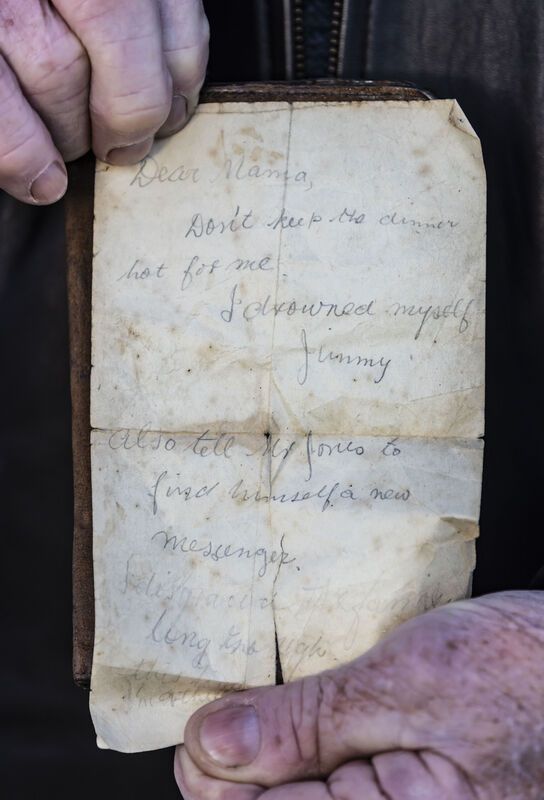 Dear Mama,
Don't keep the dinner
hot for me.
I drowned myself
Jimmy
Also tell Mr Jones to
find himself a new
messenger.
I disgraced the family
long enough